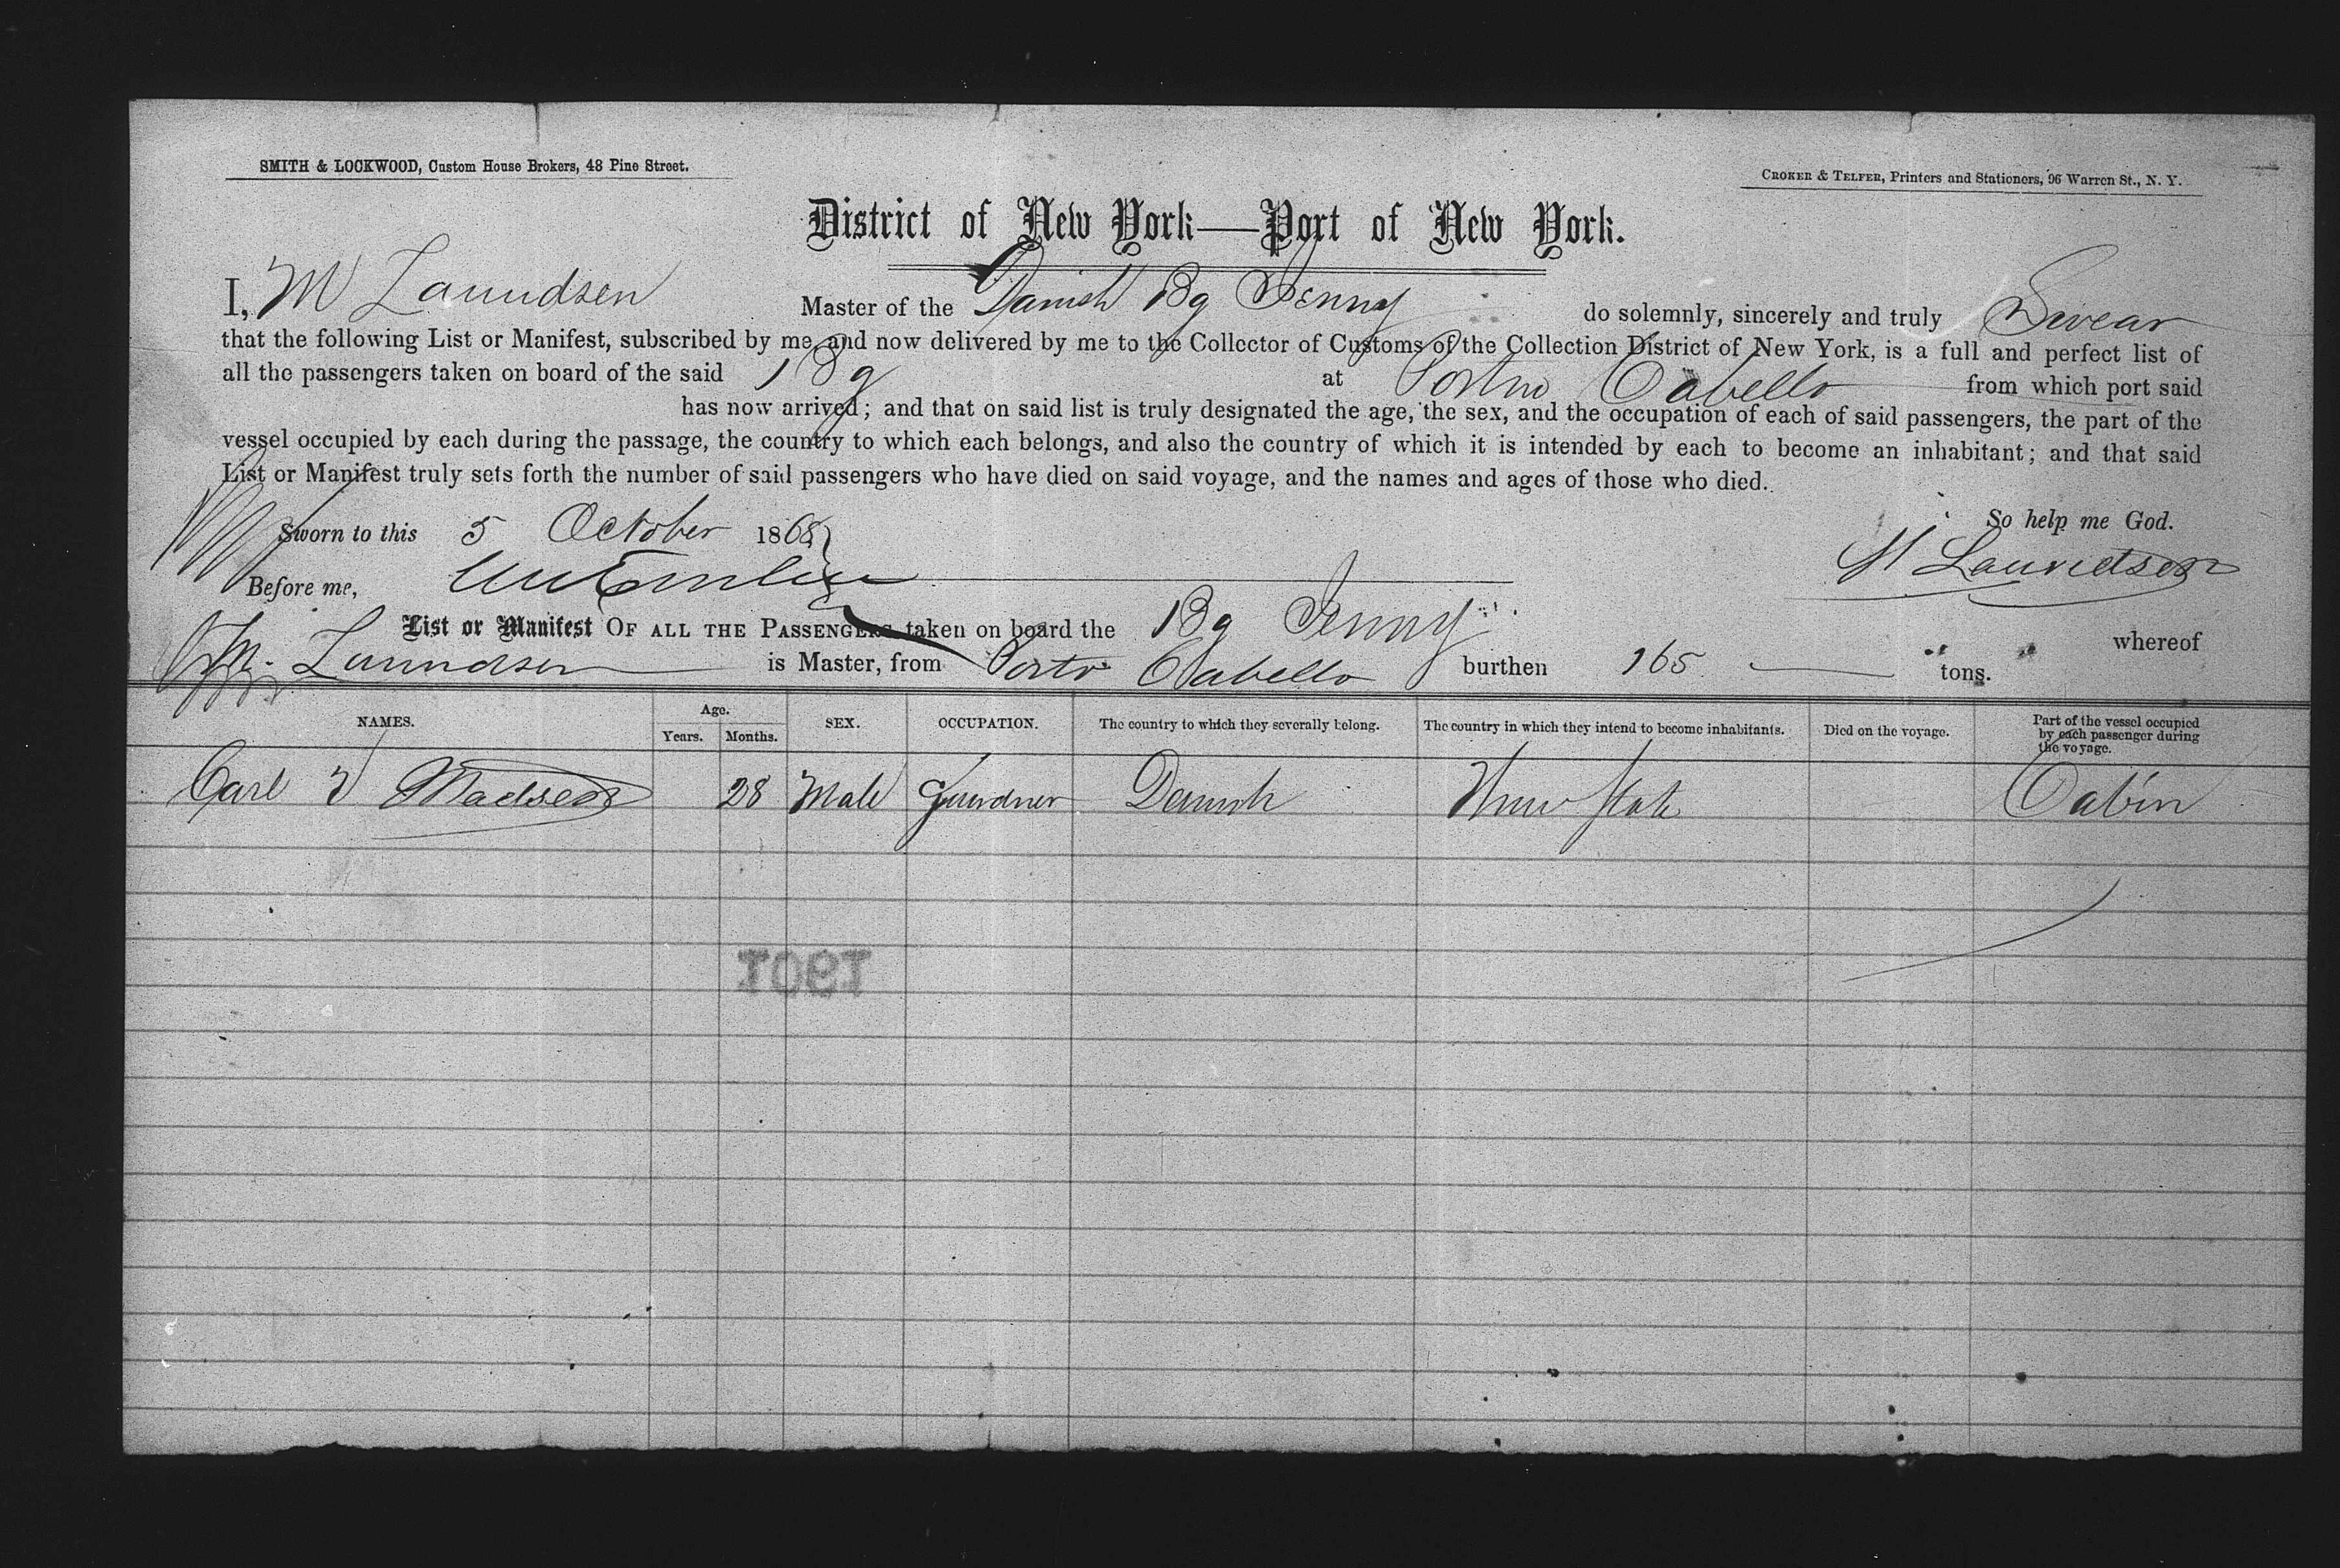 SMITH & LOCKWOOD, Custom House Brokers, 48 Pine Street.
CROKER & TELFER, Printers and Stationers, 96 Warren St., N. Y.
District of New York—Port of New York.
I, M Lauridsen Master of the Danish Bg Jenny do solemnly, sincerely and truly Swear
that the following List or Manifest, subscribed by me, and now delivered by me to the Collector of Customs of the Collection District of New York, is a full and perfect list of
all the passengers taken on board of the said Bg at Porto Cabello from which port said
has now arrived; and that on said list is truly designated the age, the sex, and the occupation of each of said passengers, the part of the
vessel occupied by each during the passage, the country to which each belongs, and also the country of which it is intended by each to become an inhabitant; and that said
List or Manifest truly sets forth the number of said passengers who have died on said voyage, and the names and ages of those who died.
So help me God.
Sworn to this 5 October 1868
M Lauridsen
Before me,
List or Manifest OF ALL THE PASSENGERS taken on board the Bg Jenny whereof
M. Lauridsen is Master, from Porto Cabello burthen 165 tons.
NAMES. Age. Years. Months. SEX. OCCUPATION. The country to which they severally belong. The country in which they intend to become inhabitants. Died on the voyage. Part of the vessel occupied by each passenger during the voyage.
Carl Madsen 28 Male Danish Cabin
1901